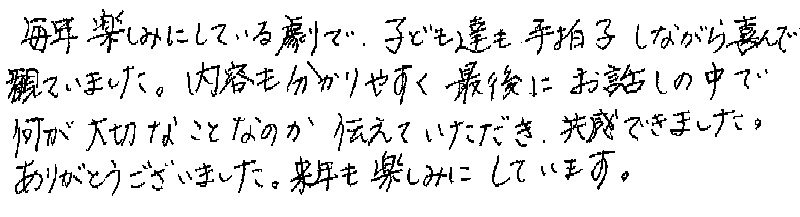 毎年楽しみにしている劇で、子ども達も手拍子しながら喜んで
観ていました。内容も分かりやすく最後にお話しの中で
何が大切なことなのか伝えていただき、共感できました。
ありがとうございました。来年も楽しみにしています。